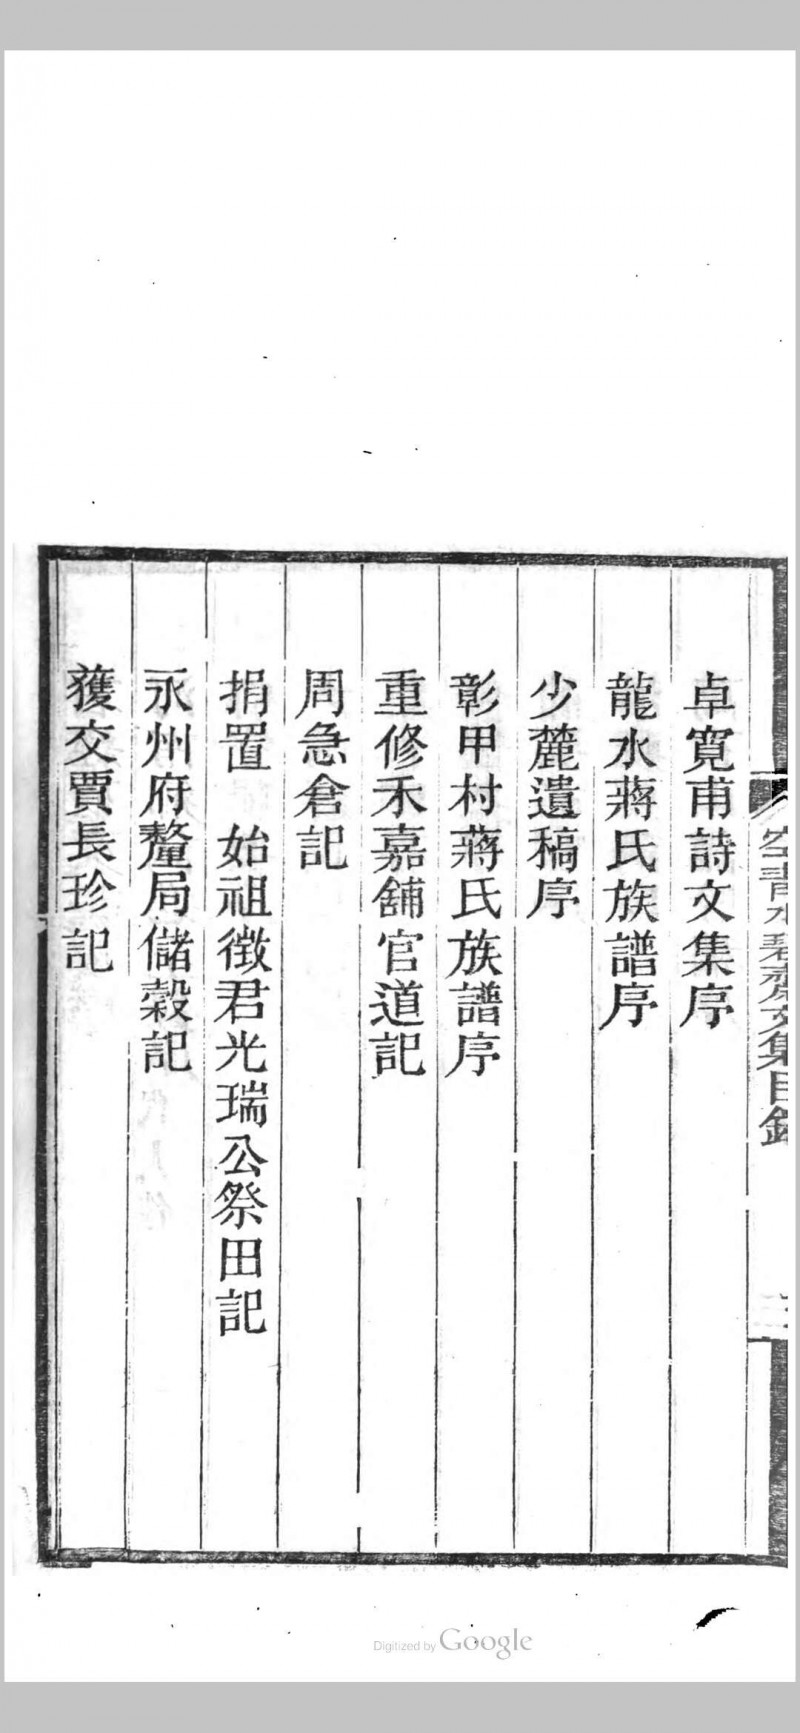 空青水碧齋文集目錄
卓寬甫詩文集序
龍水蔣氏族譜序
少麓遺稿序
彰甲村蔣氏族譜序
重修禾嘉舖官道記
周急倉記
捐置　始祖徵君光瑞公祭田記
永州府釐局儲穀記
獲交賈長珍記
Digitized by Google